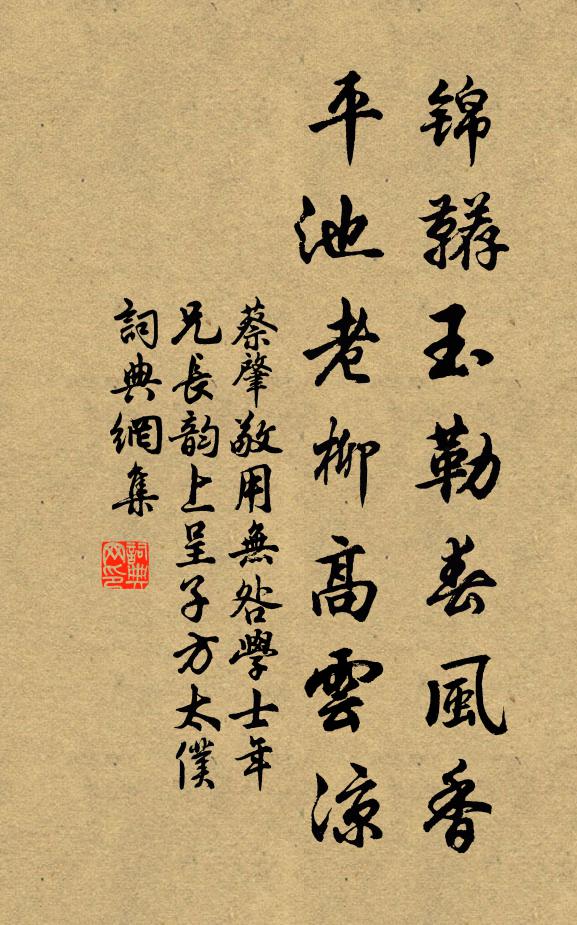 锦韉玉勒春風香
平池老柳高雲涼
蔡肇敬用無咎學士年
兄長韵上呈子方太僕
詞典網集
詞典
网印